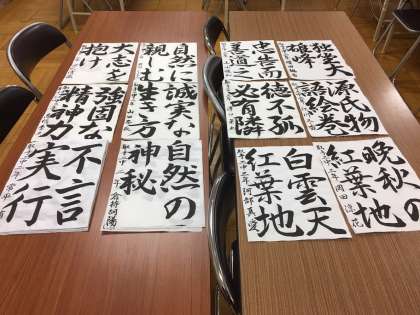 大志を
抱け
強固な
精神力
不言
実行
自然に
親しむ
誠実な
生き方
自然の
神秘
忠告而
善道之
徳不孤
必有隣
白雲天
紅葉地
独坐大
雄峰
源氏物
語絵巻
晩秋の
紅葉地